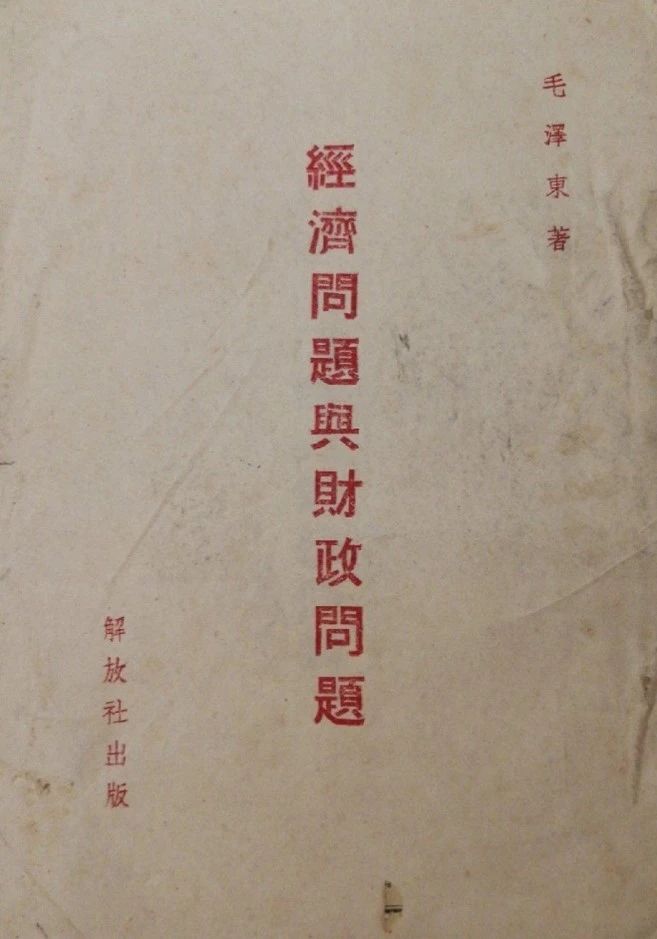 毛澤東著
經濟問題與財政問題
解放社出版